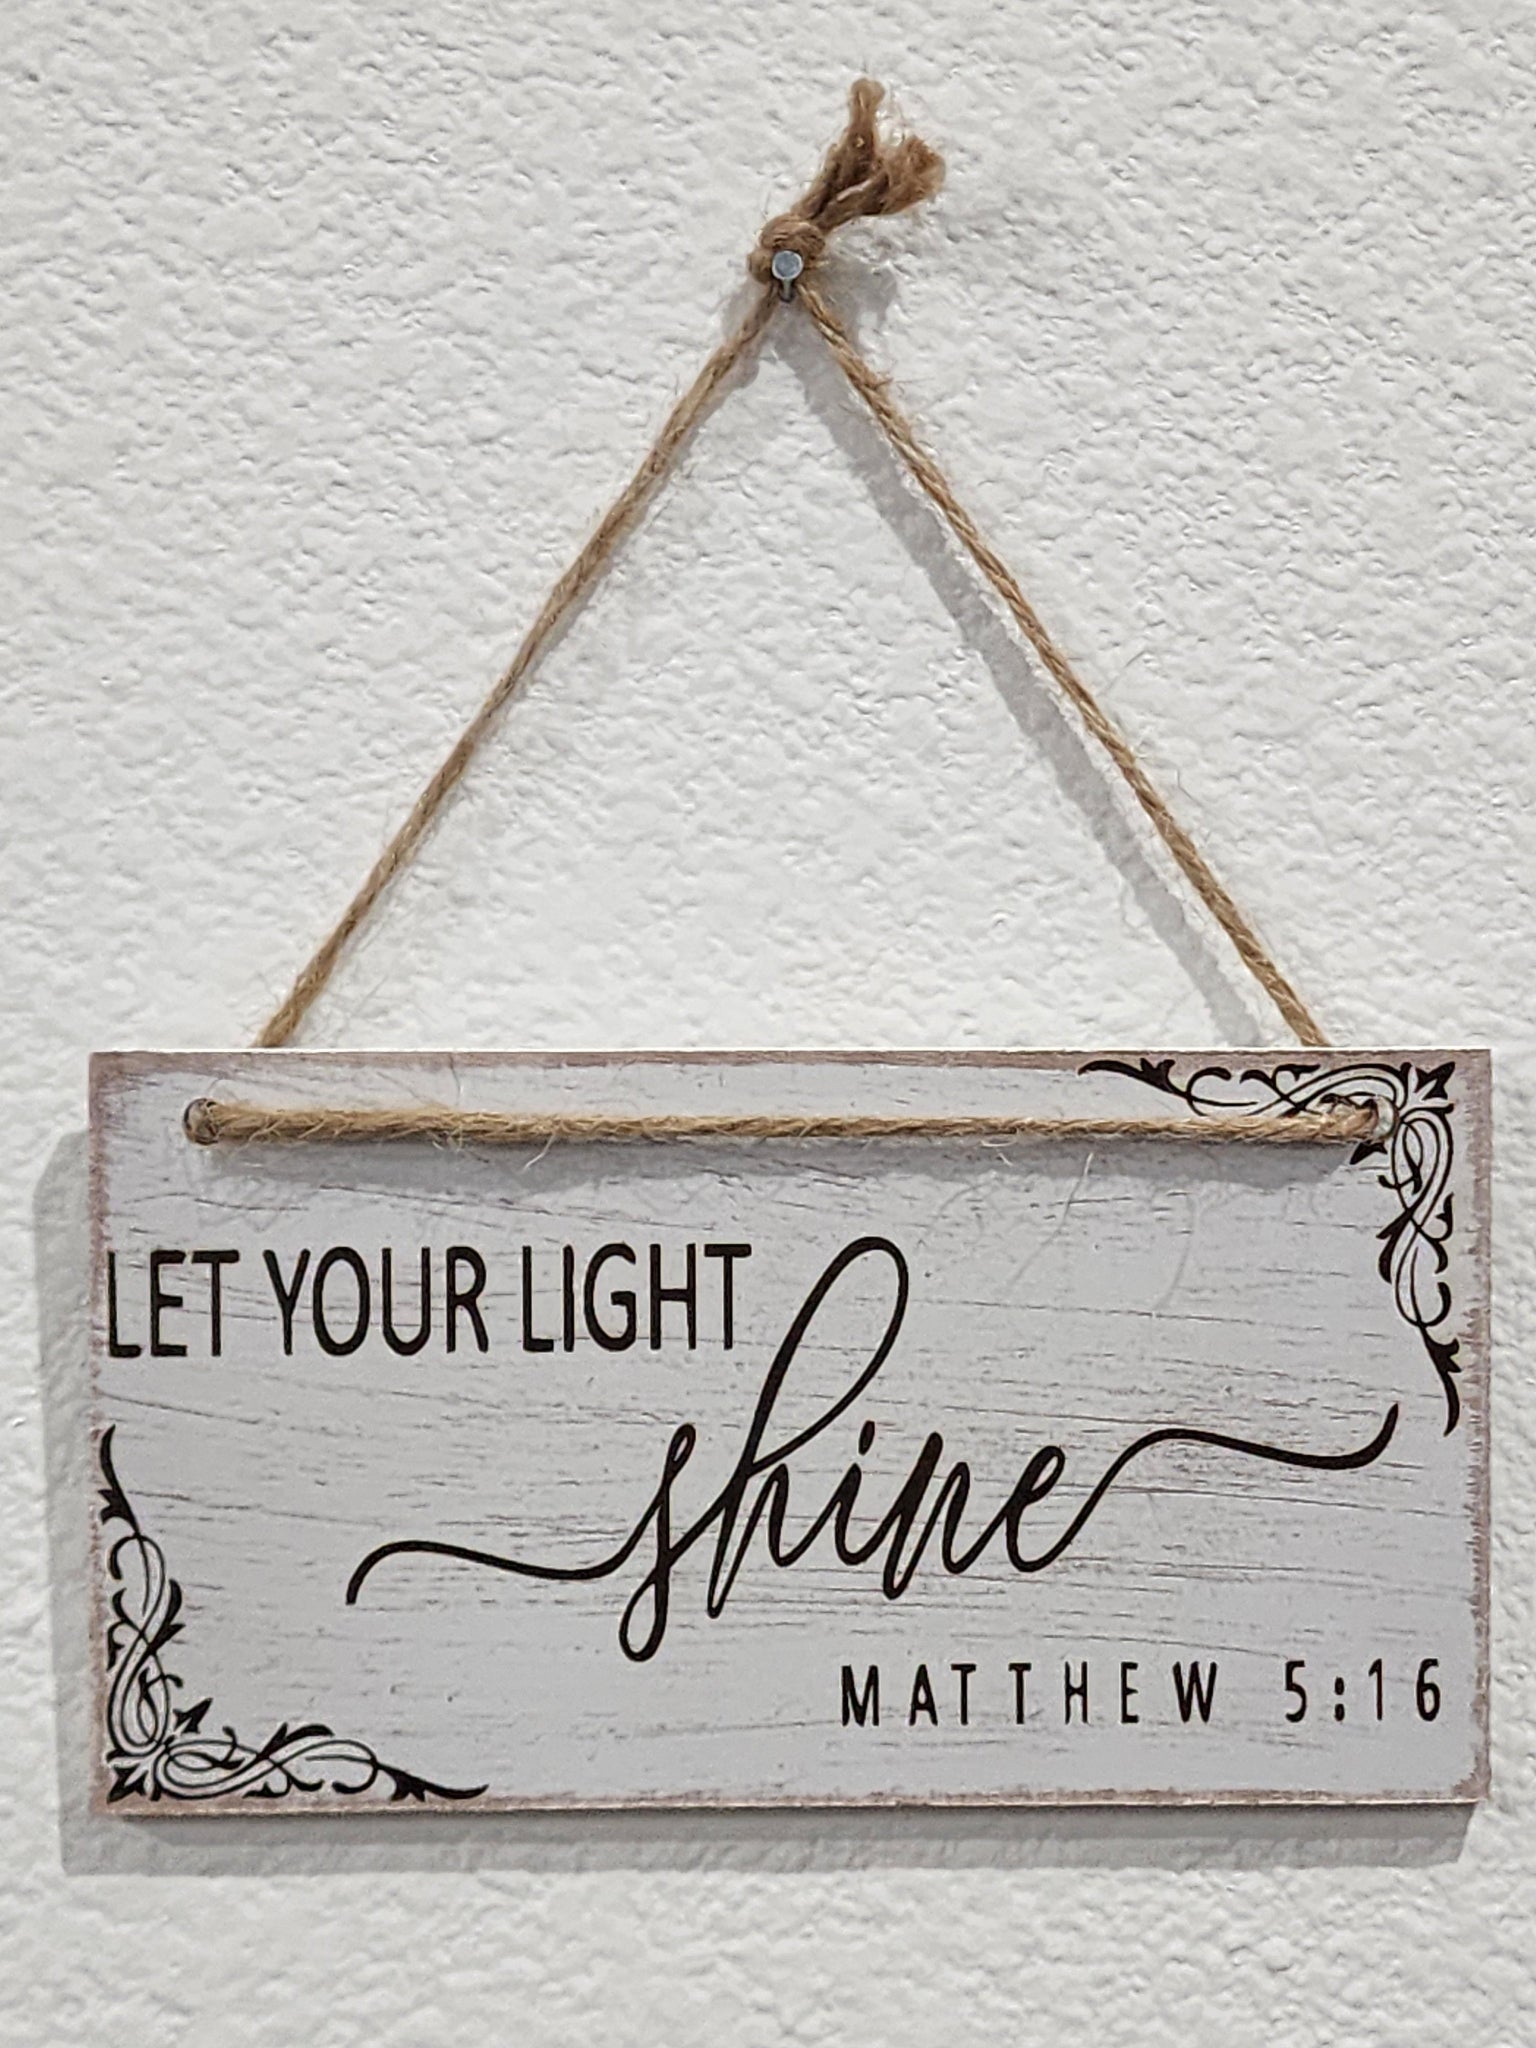 LET YOUR LIGHT
shine
MATTHEW 5:16